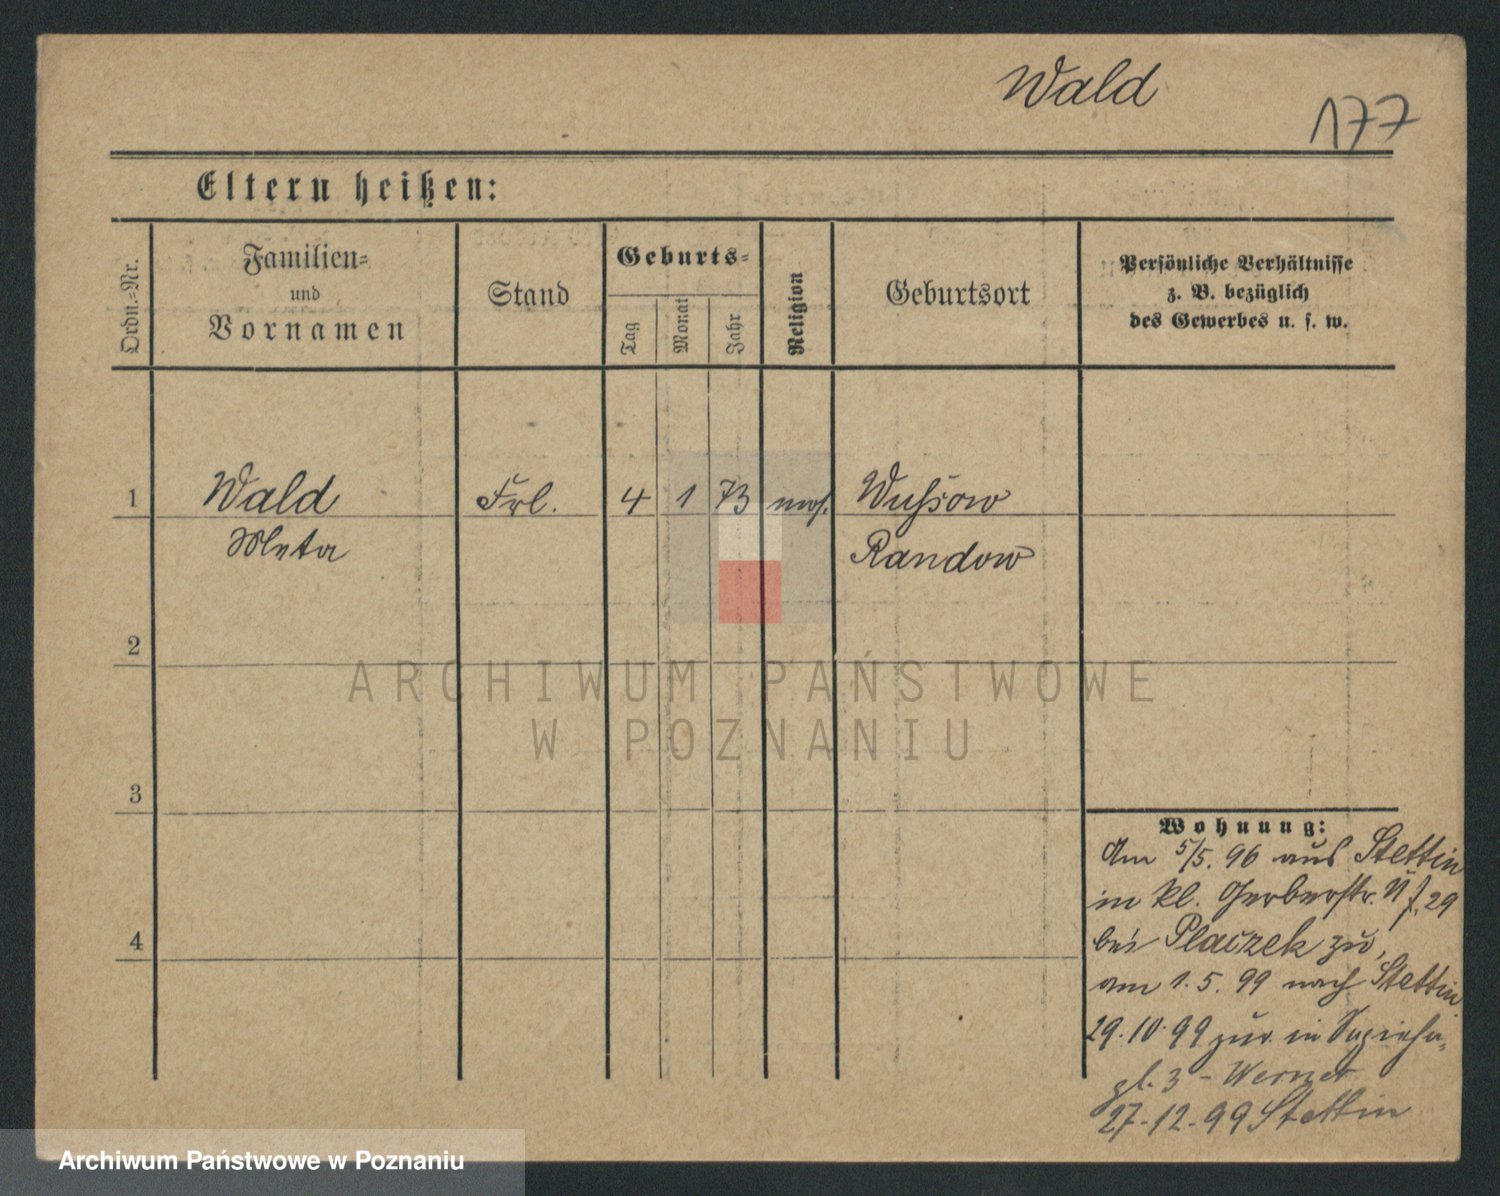 Wald
177
Eltern heißen:
Ordn.=Nr.
Familien=
und
Vornamen
Stand
Geburts=
Tag
Monat
Jahr
Religion
Geburtsort
Persönliche Verhältnisse
z. B. bezüglich
des Gewerbes u. s. w.
1 Wald Frl. 4 1 73 mos. Wussow
Meta Randow
2
3
4
ARCHIWUM PAŃSTWOWE
W POZNANIU
Wohnung:
Am 5/5. 96 aus Stettin
in kl. Gerberstr. 29
bei Placzek zu,
am 1. 5. 99 nach Stettin
29. 10. 99 zur. in
pl. 3 - Werner
27. 12. 99 Stettin
Archiwum Państwowe w Poznaniu